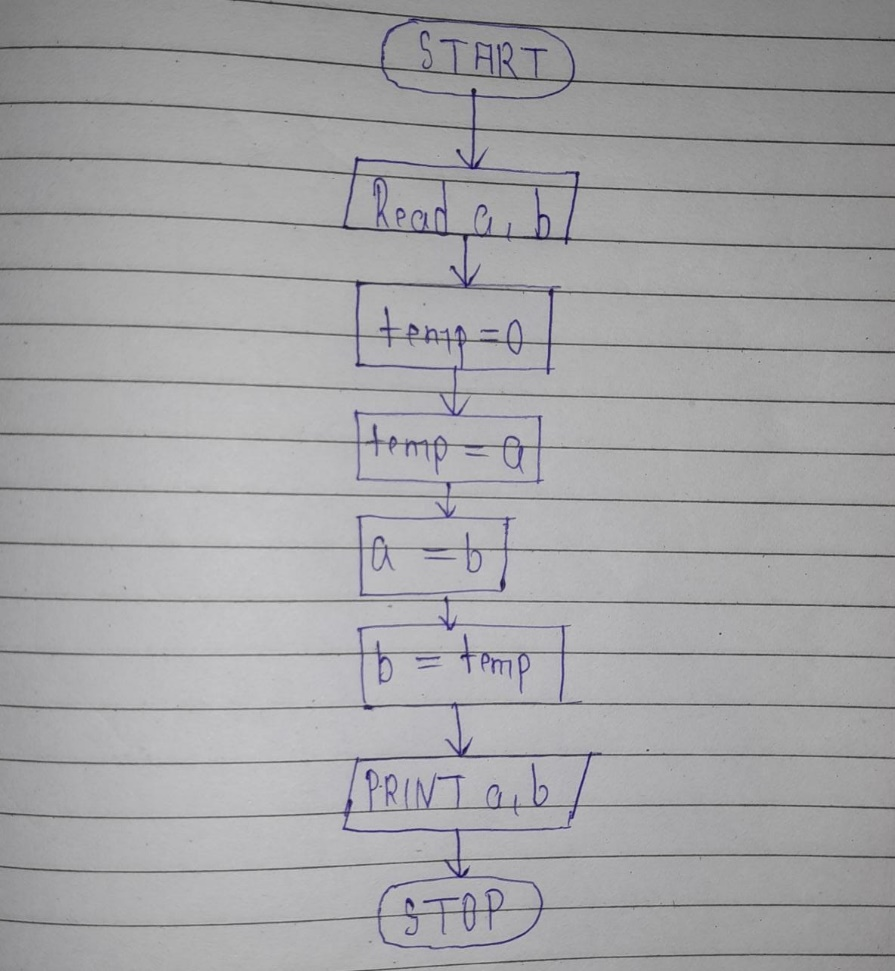 START
Read a, b
temp=0
temp = a
a = b
b = temp
PRINT a, b
STOP